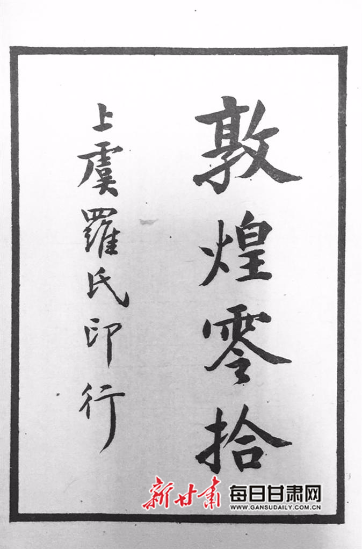 敦煌零拾
上虞羅氏印行
新甘肃
每日甘肃网
WWW.GANSUDAILY.COM.CN